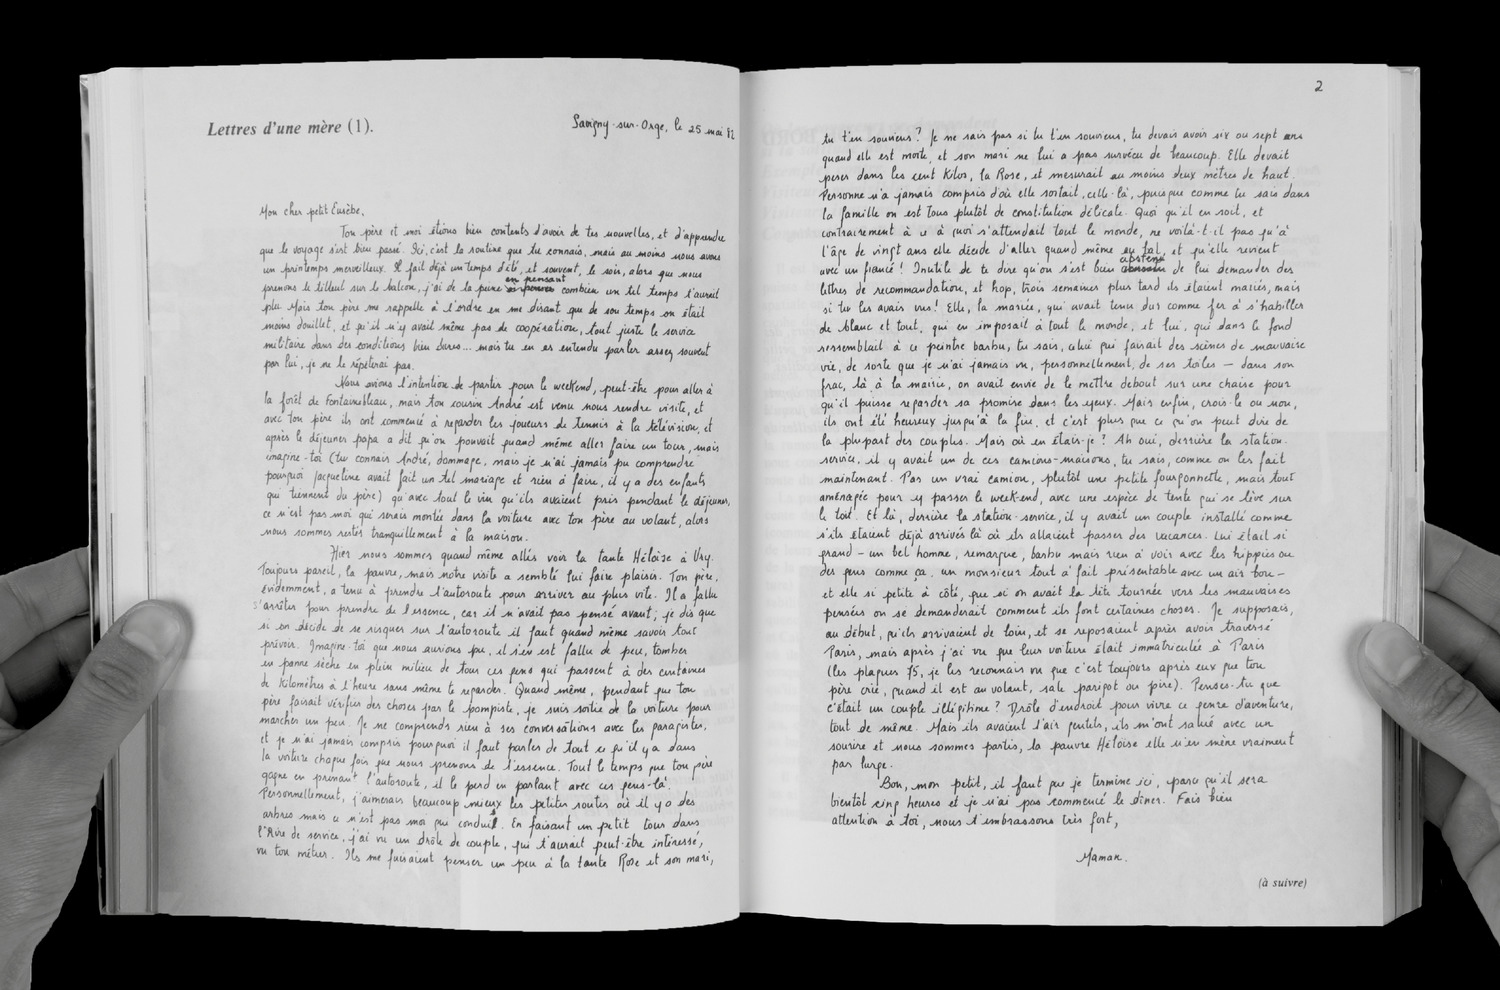 Lettres d'une mère (1).
Savigny-sur-Orge, le 25 mai 82
Mon cher petit Eusèbe,
Ton père et moi étions bien contents d'avoir de tes nouvelles, et d'apprendre
que le voyage s'est bien passé. Ici, c'est la routine que tu connais, mais au moins nous avons
un printemps merveilleux. Il fait déjà un temps d'été, et souvent, le soir, alors que nous
prenons le tilleul sur le balcon, j'ai de la peine en pensant combien un tel temps t'aurait
plu. Mais ton père me rappelle à l'ordre en me disant que de son temps on était
moins douillet, et qu'il n'y avait même pas de coopération, tout juste le service
militaire dans des conditions bien dures... mais tu en as entendu parler assez souvent
par lui, je ne le répéterai pas.
Nous avions l'intention de partir pour le weekend, peut-être pour aller à
la forêt de Fontainebleau, mais ton cousin André est venu nous rendre visite, et
avec ton père ils ont commencé à regarder les joueurs de tennis à la télévision, et
après le déjeuner papa a dit qu'on pouvait quand même aller faire un tour, mais
imagine-toi (tu connais André, dommage, mais je n'ai jamais pu comprendre
pourquoi Jacqueline avait fait un tel mariage et rien à faire, il y a des enfants
qui tiennent du père) qu'avec tout le vin qu'ils avaient pris pendant le déjeuner,
ce n'est pas moi qui serais montée dans la voiture avec ton père au volant, alors
nous sommes restés tranquillement à la maison.
Hier nous sommes quand même allés voir la tante Héloïse à Ury.
Toujours pareil, la pauvre, mais notre visite a semblé lui faire plaisir. Ton père,
évidemment, a tenu à prendre l'autoroute pour arriver au plus vite. Il a fallu
s'arrêter pour prendre de l'essence, car il n'avait pas pensé avant; je dis que
si on décide de se risquer sur l'autoroute il faut quand même savoir tout
prévoir. Imagine-toi que nous aurions pu, il s'en est fallu de peu, tomber
en panne sèche en plein milieu de tous ces gens qui passent à des centaines
de kilomètres à l'heure sans même te regarder. Quand même, pendant que ton
père faisait vérifier des choses par le pompiste, je suis sortie de la voiture pour
marcher un peu. Je ne comprends rien à ses conversations avec les garagistes,
et je n'ai jamais compris pourquoi il faut parler de tout ce qu'il y a dans
la voiture chaque fois que nous prenons de l'essence. Tout le temps que ton père
gagne en prenant l'autoroute, il le perd en parlant avec ces gens-là.
Personnellement, j'aimerais beaucoup mieux les petites routes où il y a des
arbres mais ce n'est pas moi qui conduis. En faisant un petit tour dans
l'Aire de service, j'ai vu un drôle de couple, qui t'aurait peut-être intéressé,
vu ton métier. Ils me faisaient penser un peu à la tante Rose et son mari,
2
tu t'en souviens? Je ne sais pas si tu t'en souviens, tu devais avoir six ou sept ans
quand elle est morte, et son mari ne lui a pas survécu de beaucoup. Elle devait
peser dans les cent kilos, la Rose, et mesurait au moins deux mètres de haut.
Personne n'a jamais compris d'où elle sortait, celle-là, puisque comme tu sais dans
la famille on est tous plutôt de constitution délicate. Quoi qu'il en soit, et
contrairement à ce à quoi s'attendait tout le monde, ne voilà-t-il pas qu'à
l'âge de vingt ans elle décide d'aller quand même au bal, et qu'elle revient
avec un fiancé! Inutile de te dire qu'on s'est bien abstenu de lui demander des
lettres de recommandation, et hop, trois semaines plus tard ils étaient mariés, mais
si tu les avais vus! Elle, la mariée, qui avait tenu dur comme fer à s'habiller
de blanc et tout, qui en imposait à tout le monde, et lui, qui dans le fond
ressemblait à ce peintre barbu, tu sais, celui qui faisait des scènes de mauvaise
vie, de sorte que je n'ai jamais vu, personnellement, de ses toiles – dans son
frac, là à la mairie, on avait envie de le mettre debout sur une chaise pour
qu'il puisse regarder sa promise dans les yeux. Mais enfin, crois-le ou non,
ils ont été heureux jusqu'à la fin, et c'est plus que ce qu'on peut dire de
la plupart des couples. Mais où en étais-je? Ah oui, derrière la station-
service, il y avait un de ces camions-maisons, tu sais, comme on les fait
maintenant. Pas un vrai camion, plutôt une petite fourgonnette, mais tout
aménagée pour y passer le week-end, avec une espèce de tente qui se lève sur
le toit. Et là, derrière la station-service, il y avait un couple installé comme
s'ils étaient déjà arrivés là où ils allaient passer des vacances. Lui était si
grand – un bel homme, remarque, barbu mais rien à voir avec les hippies ou
des gens comme ça, un monsieur tout à fait présentable avec un air bon –
et elle si petite à côté, que si on avait la tête tournée vers les mauvaises
pensées on se demanderait comment ils font certaines choses. Je supposais,
au début, qu'ils arrivaient de loin, et se reposaient après avoir traversé
Paris, mais après j'ai vu que leur voiture était immatriculée à Paris
(les plaques 75, je les reconnais vu que c'est toujours après eux que ton
père crie, quand il est au volant, sale parigot ou pire). Penses-tu que
c'était un couple illégitime? Drôle d'endroit pour vivre ce genre d'aventure,
tout de même. Mais ils avaient l'air gentils, ils m'ont salué avec un
sourire et nous sommes partis, la pauvre Héloïse elle n'en mène vraiment
pas large.
Bon, mon petit, il faut que je termine ici, parce qu'il sera
bientôt cinq heures et je n'ai pas commencé le dîner. Fais bien
attention à toi, nous t'embrassons très fort,
Maman.
(à suivre)